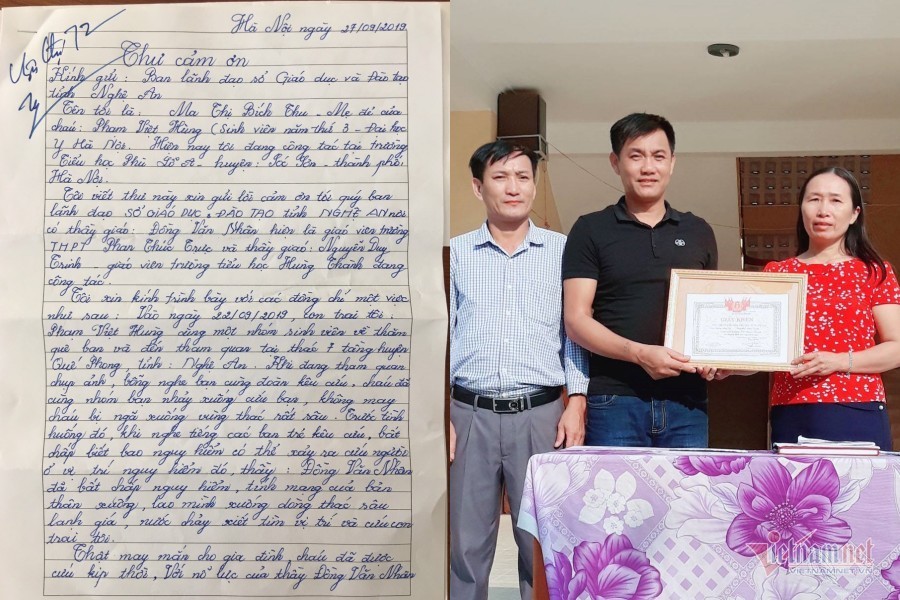 Hà Nội ngày 27/09/2019
Thư cảm ơn
Kính gửi: Ban lãnh đạo sở Giáo dục và Đào tạo
tỉnh Nghệ An
Tên tôi là: Ma Thị Bích Thu - Mẹ đẻ của
cháu: Phạm Việt Hùng (Sinh viên năm thứ 3 - Đại học
Y Hà Nội. Hiện nay tôi đang công tác tại trường
Tiểu học Phù Lỗ A - huyện: Sóc Sơn - thành phố
Hà Nội.
Tôi viết thư này xin gửi lời cảm ơn tới quý ban
lãnh đạo SỞ GIÁO DỤC & ĐÀO TẠO tỉnh NGHỆ AN nơi
có thầy giáo: Đồng Văn Nhân hiện là giáo viên trường
THPT Phan Thúc Trực và thầy giáo: Nguyễn Duy
Trinh giáo viên trường tiểu học Hưng Thành đang
công tác.
Tôi xin kính trình bày với các đồng chí một việc
như sau: Vào ngày 22/09/2019, con trai tôi:
Phạm Việt Hùng cùng một nhóm sinh viên về thăm
quê bạn và đến tham quan tại thác 7 tầng huyện
Quế Phong, tỉnh: Nghệ An. Khi đang tham quan
chụp ảnh, bỗng nghe bạn cùng đoàn kêu cứu, cháu đã
cùng nhóm bạn nhảy xuống cứu bạn, không may
cháu bị ngã xuống vùng thác rất sâu. Trước tình
huống đó, khi nghe tiếng các bạn trẻ kêu cứu, bất
chấp biết bao nguy hiểm có thể xảy ra cứu người
ở vị trí nguy hiểm đó, thầy: Đồng Văn Nhân
đã bất chấp nguy hiểm, tính mạng của bản
thân xuống, lao mình xuống dòng thác sâu
lạnh giá, nước chảy xiết tìm vị trí và cứu con
trai tôi.
Thật may mắn cho gia đình cháu đã được
cứu kịp thời, Với nỗ lực của thầy Đồng Văn Nhân
GIẤY KHEN
Vietnamnet
VIETNAMNET.VN